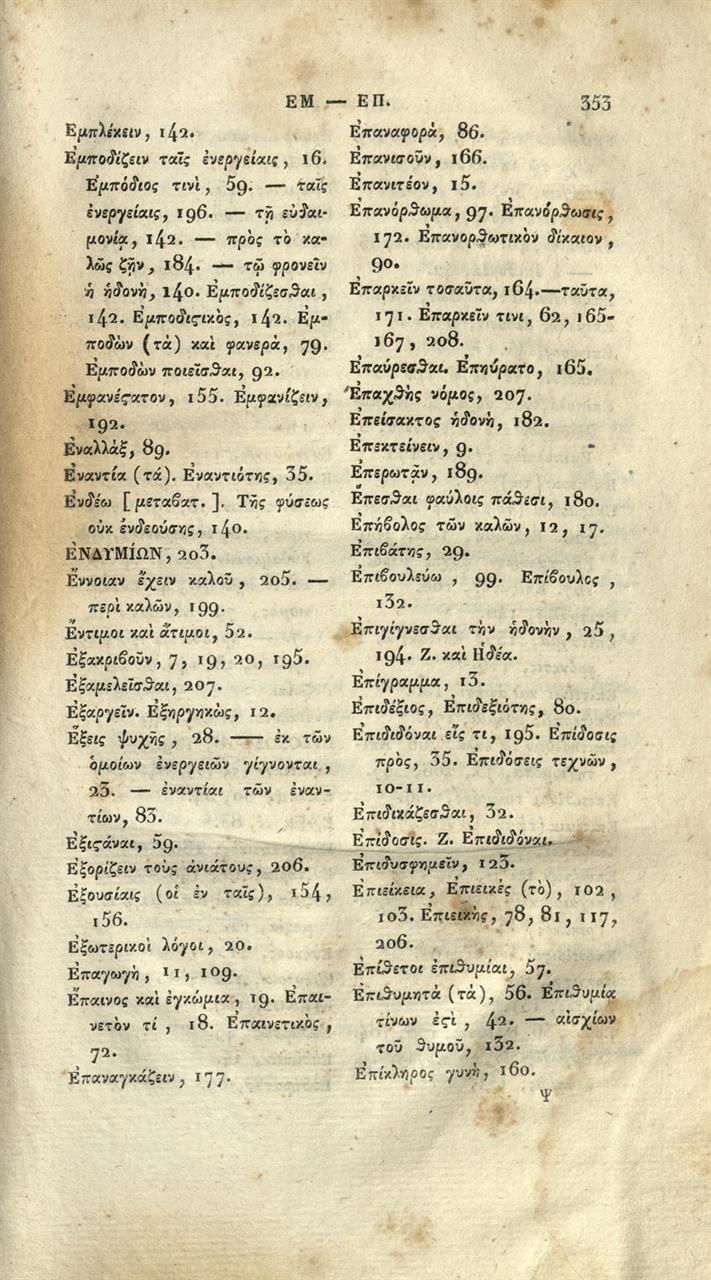 ΕΜ — ΕΠ. 353
Ἐμπλέκειν, 142.
Ἐμποδίζειν ταῖς ἐνεργείαις, 16.
Ἐμπόδιος τινὶ, 59. — ταῖς
ἐνεργείαις, 196. — τῇ εὐδαι-
μονίᾳ, 142. — πρὸς τὸ κα-
λῶς ζῇν, 184. — τῷ φρονεῖν
ἡ ἡδονὴ, 140. Ἐμποδίζεσθαι,
142. Ἐμποδιϛικὸς, 142. Ἐμ-
ποδὼν (τὰ) καὶ φανερὰ, 79.
Ἐμποδὼν ποιεῖσθαι, 92.
Ἐμφανέϛατον, 155. Ἐμφανίζειν,
192.
Ἐναλλὰξ, 89.
Ἐναντία (τά). Ἐναντιότης, 35.
Ἐνδέω [μεταβατ.]. Τῆς φύσεως
οὐκ ἐνδεούσης, 140.
ἘΝΔΥΜΊΩΝ, 203.
Ἔννοιαν ἔχειν καλοῦ, 205. —
περὶ καλῶν, 199.
Ἔντιμοι καὶ ἄτιμοι, 52.
Ἐξακριβοῦν, 7, 19, 20, 195.
Ἐξαμελεῖσθαι, 207.
Ἐξαργεῖν. Ἐξηργηκὼς, 12.
Ἕξεις ψυχῆς, 28. — ἐκ τῶν
ὁμοίων ἐνεργειῶν γίγνονται,
23. — ἐναντίαι τῶν ἐναν-
τίων, 83.
Ἐξιϛάναι, 59.
Ἐξορίζειν τοὺς ἀνιάτους, 206.
Ἐξουσίαις (οἱ ἐν ταῖς), 154,
156.
Ἐξωτερικοὶ λόγοι, 20.
Ἐπαγωγὴ, 11, 109.
Ἔπαινος καὶ ἐγκώμια, 19. Ἐπαι-
νετὸν τί, 18. Ἐπαινετικὸς,
72.
Ἐπαναγκάζειν, 177.
Ἐπαναφορὰ, 86.
Ἐπανισοῦν, 166.
Ἐπανιτέον, 15.
Ἐπανόρθωμα, 97. Ἐπανόρθωσις,
172. Ἐπανορθωτικὸν δίκαιον,
90.
Ἐπαρκεῖν τοσαῦτα, 164.—ταῦτα,
171. Ἐπαρκεῖν τινι, 62, 165-
167, 208.
Ἐπαύρεσθαι. Ἐπηύρατο, 165.
Ἐπαχθὴς νόμος, 207.
Ἐπείσακτος ἡδονὴ, 182.
Ἐπεκτείνειν, 9.
Ἐπερωτᾷν, 189.
Ἕπεσθαι φαύλοις πάθεσι, 180.
Ἐπήβολος τῶν καλῶν, 12, 17.
Ἐπιβάτης, 29.
Ἐπιβουλεύω, 99. Ἐπίβουλος,
132.
Ἐπιγίγνεσθαι τὴν ἡδονὴν, 25,
194. Ζ. καὶ Ἡδέα.
Ἐπίγραμμα, 13.
Ἐπιδέξιος, Ἐπιδεξιότης, 80.
Ἐπιδιδόναι εἴς τι, 195. Ἐπίδοσις
πρὸς, 35. Ἐπιδόσεις τεχνῶν,
10-11.
Ἐπιδικάζεσθαι, 32.
Ἐπίδοσις. Ζ. Ἐπιδιδόναι.
Ἐπιδυσφημεῖν, 123.
Ἐπιείκεια, Ἐπιεικὲς (τὸ), 102,
103. Ἐπιεικὴς, 78, 81, 117,
206.
Ἐπίθετοι ἐπιθυμίαι, 57.
Ἐπιθυμητὰ (τά), 56. Ἐπιθυμία
τίνων ἐϛὶ, 42. — αἰσχίων
τοῦ θυμοῦ, 132.
Ἐπίκληρος γυνὴ, 160.
Ψ